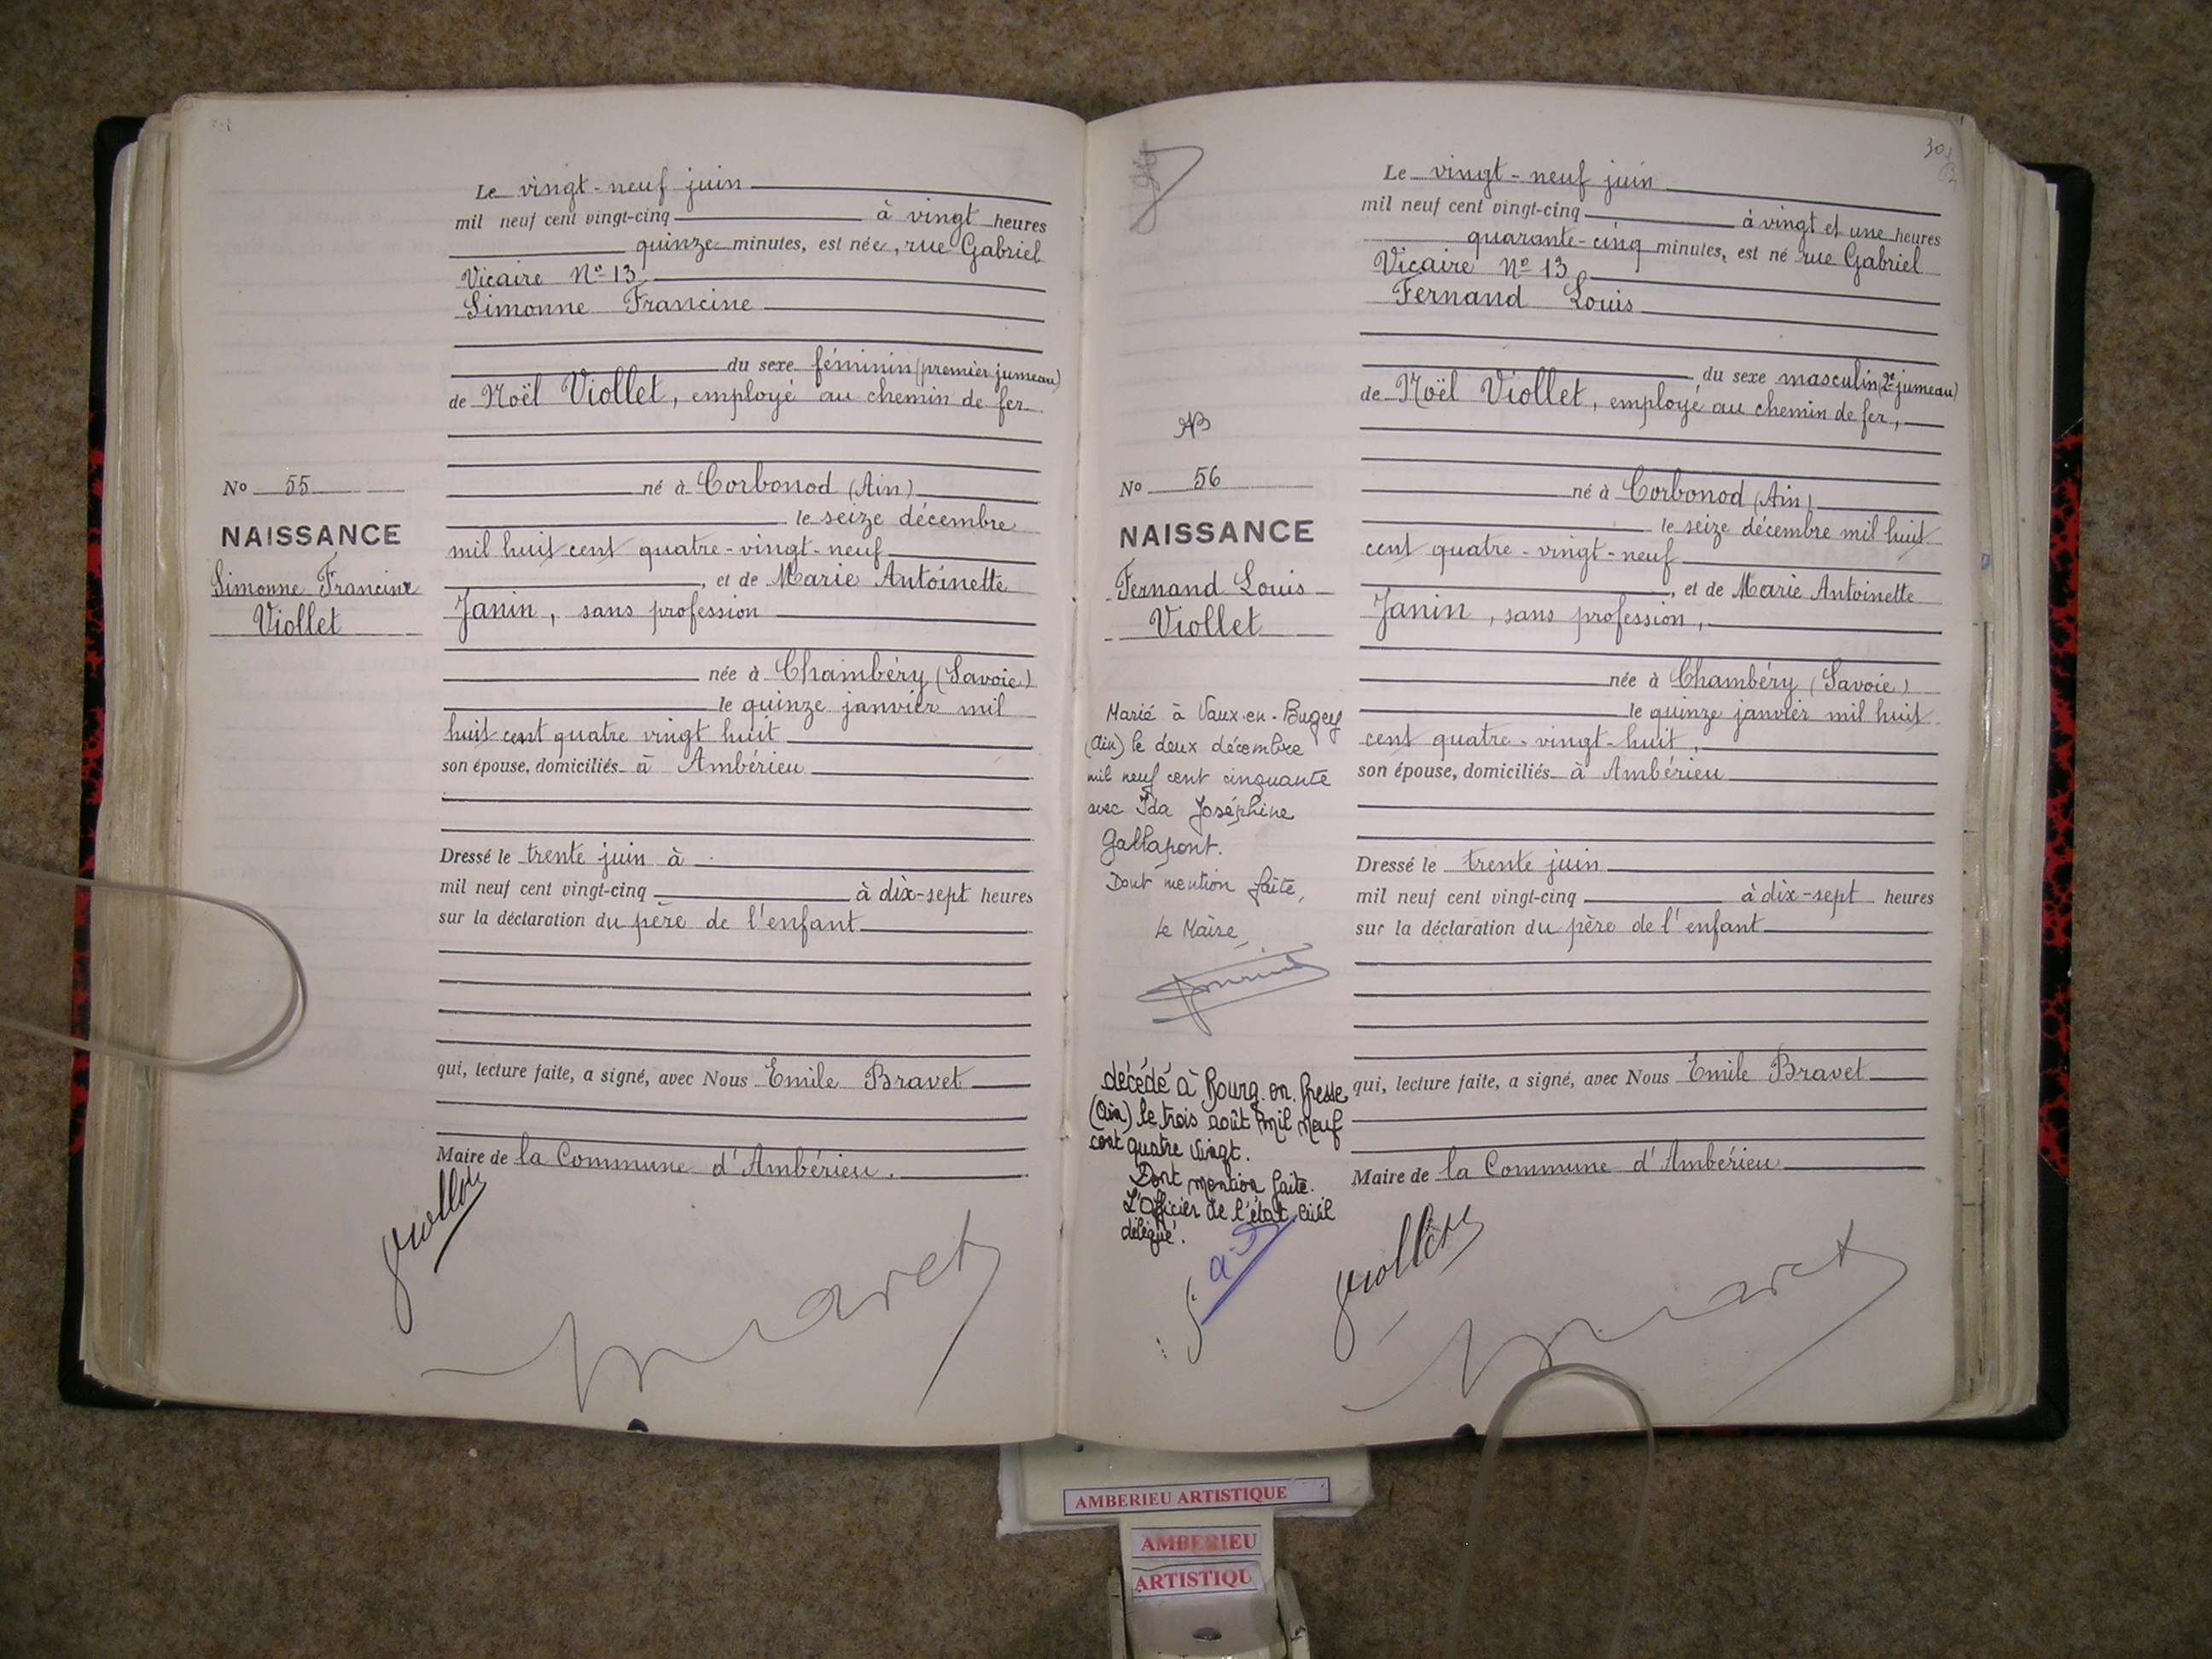 Le vingt-neuf juin
mil neuf cent vingt-cinq à vingt heures
quinze minutes, est née, rue Gabriel
Vicaire Nº 13
Simonne Francine
du sexe féminin (premier jumeau)
de Noël Viollet, employé au chemin de fer
né à Corbonod (Ain)
le seize décembre
mil huit cent quatre-vingt-neuf
, et de Marie Antoinette
Janin, sans profession
née à Chambéry (Savoie)
le quinze janvier mil
huit cent quatre vingt huit
son épouse, domiciliés à Ambérieu
Dressé le trente juin à
mil neuf cent vingt-cinq à dix-sept heures
sur la déclaration du père de l'enfant
qui, lecture faite, a signé, avec Nous Emile Bravet
Maire de la Commune d'Ambérieu.
No 55
NAISSANCE
Simonne Francine
Viollet
Le vingt-neuf juin
mil neuf cent vingt-cinq à vingt et une heures
quarante-cinq minutes, est né rue Gabriel
Vicaire Nº 13
Fernand Louis
du sexe masculin (2e jumeau)
de Noël Viollet, employé au chemin de fer,
né à Corbonod (Ain)
le seize décembre mil huit
cent quatre-vingt-neuf
, et de Marie Antoinette
Janin, sans profession,
née à Chambéry (Savoie)
le quinze janvier mil huit
cent quatre-vingt-huit,
son épouse, domiciliés à Ambérieu
Dressé le trente juin
mil neuf cent vingt-cinq à dix-sept heures
sur la déclaration du père de l'enfant
qui, lecture faite, a signé, avec Nous Emile Bravet
Maire de la Commune d'Ambérieu
No 56
NAISSANCE
Fernand Louis
Viollet
Marié à Vaux-en-Bugey
(Ain) le deux décembre
mil neuf cent cinquante
avec Ida Joséphine
Dont mention faite,
Le Maire,
décédé à Bourg-en-Bresse
(Ain) le trois août mil neuf
cent quatre vingt.
Dont mention faite.
L'Officier de l'état civil
délégué.
AMBERIEU ARTISTIQUE
AMBERIEU
ARTISTIQU